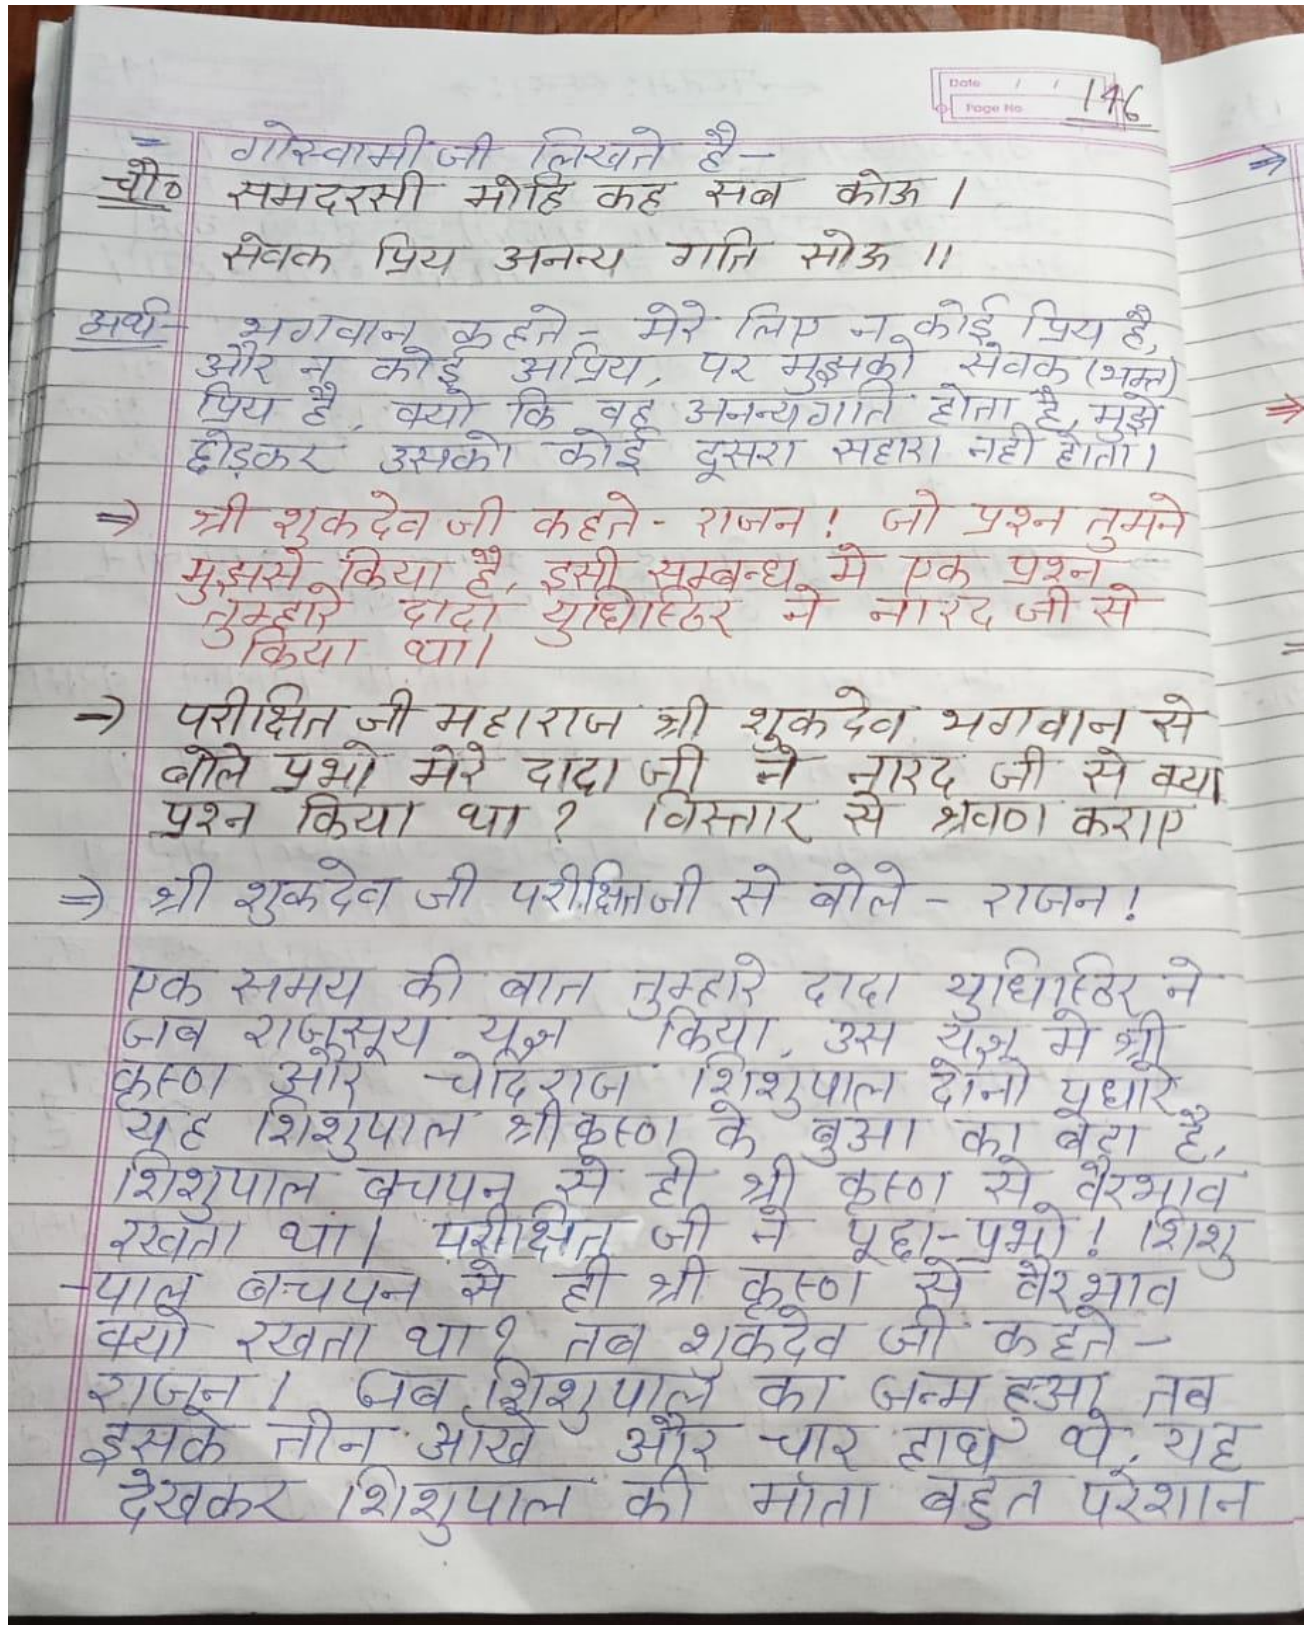 Date / /
Page No. 146
= गोस्वामी जी लिखते है-
चौ० समदरसी मोहि कह सब कोऊ ।
सेवक प्रिय अनन्य गति सोऊ ॥
अर्थ- भगवान कहते- मेरे लिए न कोई प्रिय है,
और न कोई अप्रिय, पर मुझको सेवक (भक्त)
प्रिय है, क्यो कि वह अनन्यगति होता है, मुझे
छोड़कर उसको कोई दूसरा सहारा नही होता।
⇒ श्री शुकदेव जी कहते - राजन! जो प्रश्न तुमने
मुझसे किया है, इसी सम्बन्ध मे एक प्रश्न
तुम्हारे दादा युधिष्ठिर ने नारद जी से
किया था।
→ परीक्षित जी महाराज श्री शुकदेव भगवान से
बोले प्रभो मेरे दादा जी ने नारद जी से क्या
प्रश्न किया था ? विस्तार से श्रवण कराए
⇒ श्री शुकदेव जी परीक्षित जी से बोले - राजन!
एक समय की बात तुम्हारे दादा युधिष्ठिर ने
जब राजूसूय यज्ञ किया, उस यज्ञ मे श्री
कृष्ण और चेदिराज शिशुपाल दोनो पधारे
यह शिशुपाल श्री कृष्ण के बुआ का बेटा है,
शिशुपाल बचपन से ही श्री कृष्ण से वैरभाव
रखता था। परीक्षित जी ने पूछा-प्रभो! शिशु
-पाल बचपन से ही श्री कृष्ण से वैरभाव
क्यो रखता था? तब शुकदेव जी कहते-
राजन। जब शिशुपाल का जन्म हुआ, तब
इसके तीन आँखे और चार हाथ थे, यह
देखकर शिशुपाल की माता बहुत परेशान